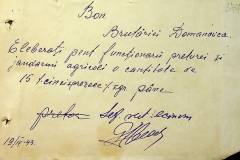 Bon
Brutăriei Domanovca
Eliberați pent funcționarii preturei și
jandarmi agricoli o cantitate de
15 (cincisprezece) kgr pâne.
pretor Șef
19/IX-43.